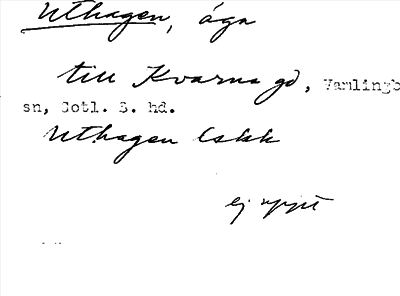 Uthagen, äga
till Kvarna gd, Vamlingb
sn, Gotl. S. hd.
Uthagen Cskk
ej uppt